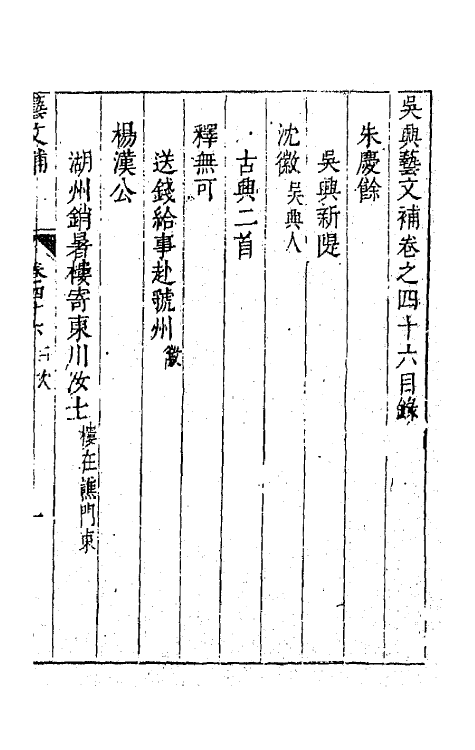 吳興藝文補卷之四十六目錄
朱慶餘
吳興新隄
沈徽吳興人
古興二首
釋無可
送錢給事赴號州徽
楊漢公
湖州銷暑樓寄東川汝士樓在譙門東
藝文補
卷四十六
一